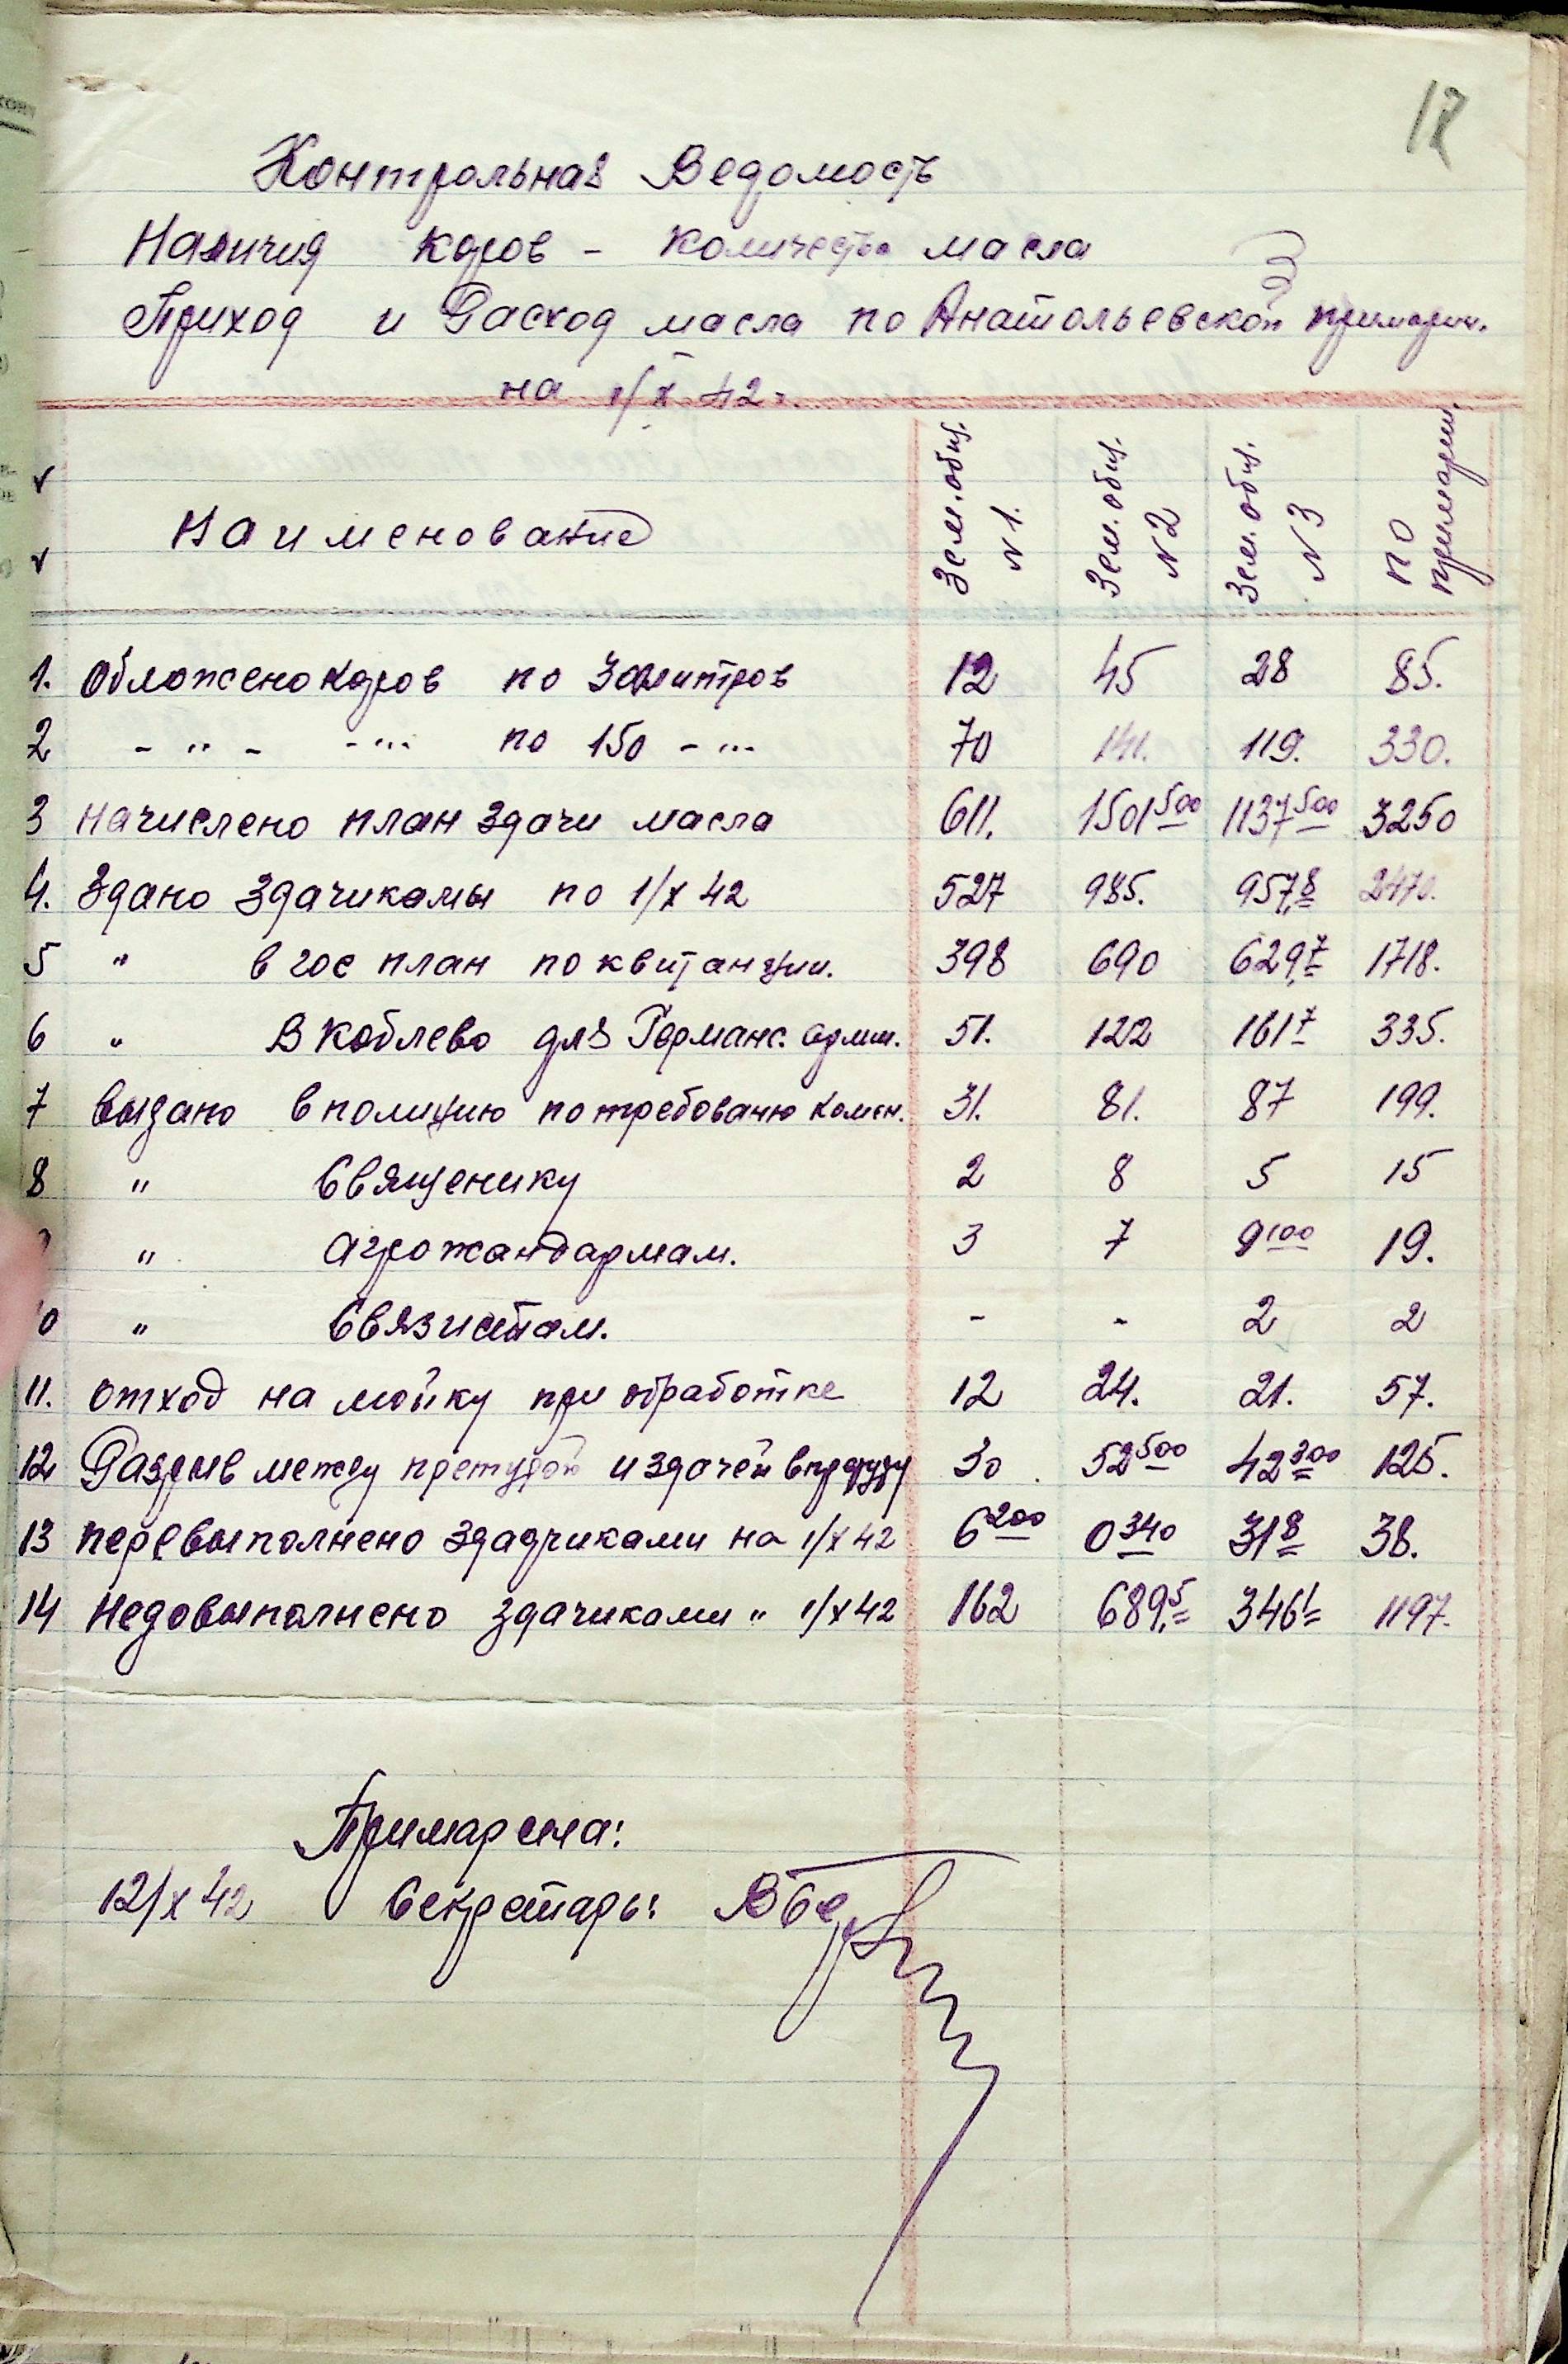 12
Контрольная Ведомость
Наличия коров - количество масла
Приход и Расход масла по Анатольевской примарии.
на 1/X 42 г.
Наименование Зем. общ. N 1. Зем. общ. N 2 Зем. общ. N 3 по примарии.
1. Обложено коров по 30 литров 12 45 28 85.
2 - " - - " - по 150 - " - 70 141. 119. 330.
3 Начислено план здачи масла 611. 1501 500 1137 500 3250
4. Здано здачиками по 1/X 42 527 985. 957,8 2470.
5 " в гос план по квитанции. 398 690 629,7 1718.
6 " В Коблево для Германс. армии. 51. 122 161 7 335.
7 выдано в полицию по требованю комен. 31. 81. 87 199.
8 " Священику 2 8 5 15
" Агрожандармам. 3 7 9 100 19.
0 " Связистам. - - 2 2
11. отход на мойку при обработке 12 24. 21. 57.
12 Разрыв между и здачей 30. 52 500 42 300 125.
13 перевыполнено здадчиками на 1/X 42 6 200 0 340 31 8 38.
14 Недовыполнено здачиками " 1/X 42 162 689,5 346 1 1197.
Примар села:
12/X 42 Секретарь: